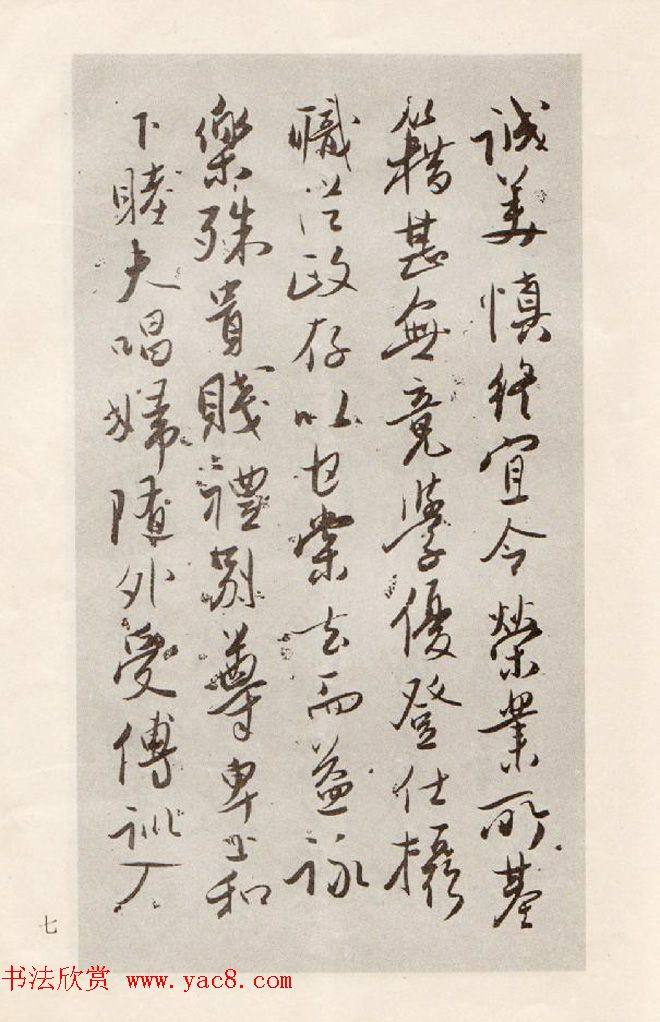 誠美慎終宜令榮業所基
籍甚無竟學優登仕攝
職從政存以甘棠去而益詠
樂殊貴賤禮別尊卑上和
下睦夫唱婦隨外受傅訓入
七
书法欣赏 www.yac8.com